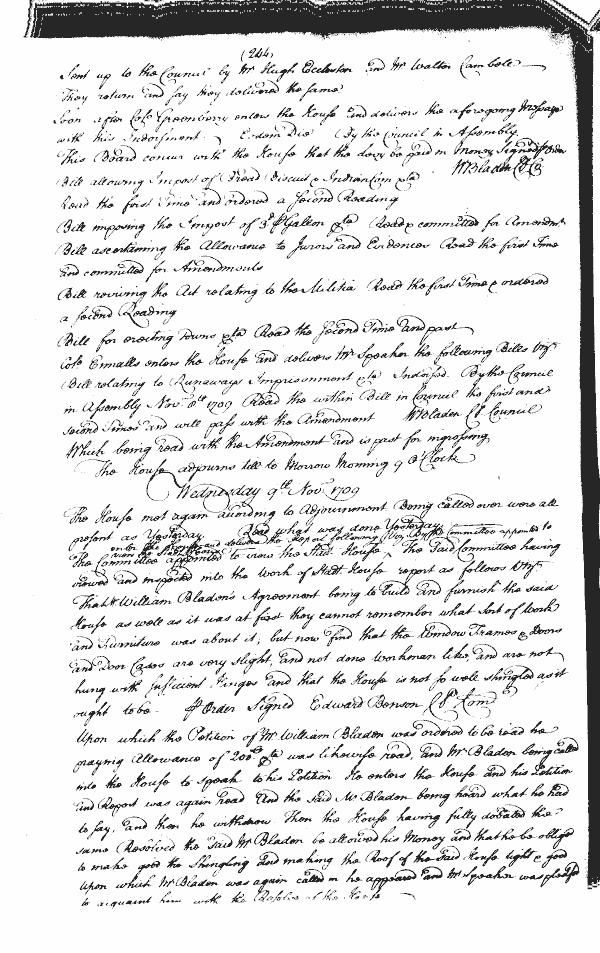 (244)
Sent up to the Council by Mr Hugh Eccleston and Mr Walter Cambele
They return and say they delivered the same
Soon after Colo Greenberry enters the House and delivers the aforegoing Message
with this Indorsment Eodem Die By the Council in Assembly
This Board concur with the House that the Levy be paid in Money Signed p Order
W Bladen Cl Co
Bill allowing Impost of Bread Biscuit & Indian Corn &ca
Read the first Time and ordered a Second Reading
Bill imposing the Impost of 3d p Gallon &ca Read & committed for Amendmt
Bill ascertaining the Allowance to Jurors and Evidences Read the first Time
and committed for Amendments
Bill reviving the Act relating to the Militia Read the first Time & ordered
a second Reading
Bill for erecting Towns &ca Read the Second Time and past
Colo Ennalls enters the House and delivers Mr Speaker the following Bills Vizt
Bill relating to Runaways Imprisonment &ca Indorsed By the Council
in Assembly Novr 8th 1709 Read the within Bill in Council the first and
second Times and will pass with the Amendment W Bladen Cl Council
Which being read with the Amendment and is past for ingrossing
The House adjourns till to Morrow Morning 9 o'Clock
Wednesday 9th Novr 1709
The House met again according to Adjournment Being called over were all
present as Yesterday Read what was done Yesterday
enter the House and deliver the Report following Vizt By the Committee appointed to
view the Stadt House
The Committee appointed to view the Stadt House, The Said Committee having
viewed and inspected into the Work of Stadt House report as follows Vizt
That Mr William Bladen's Agreement being to build and furnish the said
House as well as it was at first they cannot remember what Sort of Work
and Furniture was about it, but now find that the Window Frames & Doors
and Door Cases are very slight, and not done workman like, and are not
hung with sufficient Hinges and that the House is not so well shingled as it
ought to be. p Order Signed Edward Benson Cl Com
Upon which the Petition of Mr William Bladen was ordered to be read he
praying Allowance of 200 &ca was likewise read, and Mr Bladen being called
into the House to Speak to his Petition He enters the House and his Petition
and Report was again read And the Said Mr Bladen being heard what he had
to say, and then he withdrew Then this House having fully debated the
same Resolved the said Mr Bladen be allowed his Money and that he be obliged
to make good the Shingling and making the Roof of the Said House tight & good
Upon which Mr Bladen was again called in he appeared and Mr Speaker was pleased
to acquaint him with the Resolve of the House